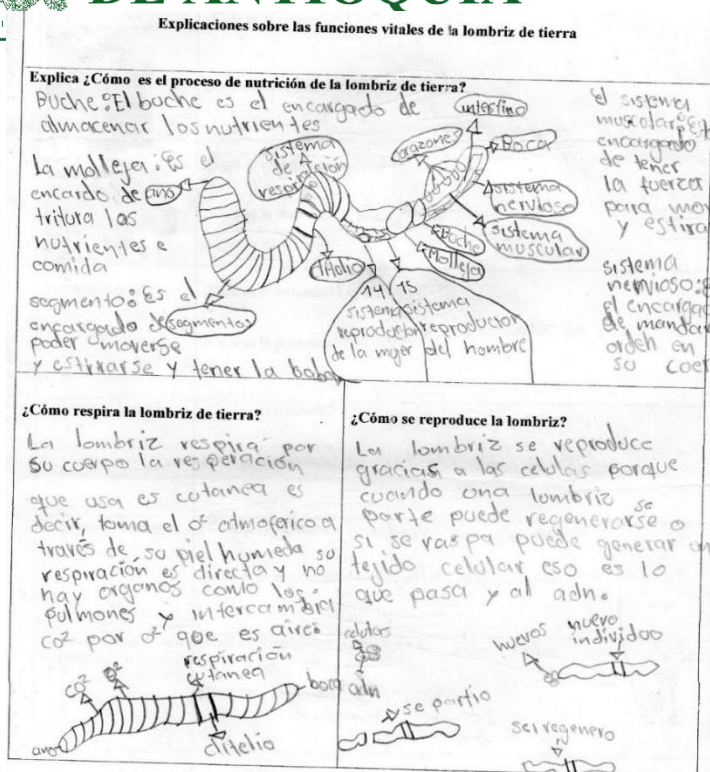 DE ANTIOQUIA
Explicaciones sobre las funciones vitales de la lombriz de tierra
Explica ¿Cómo es el proceso de nutrición de la lombriz de tierra?
Buche: El buche es el encargado de
almacenar los nutrientes
La molleja: es el
encardo de
tritura los
nutrientes e
comida
segmento: es el
encargado de
poder moverse
y estirarse y tener la baba
ano
sistema
de
respiración
corazones
intestino
Boca
sistema
nervioso
sistema
muscular
Buche
Molleja
clitelio
segmentos
14
sistema
reproductor
de la mujer
15
sistema
reproductor
del hombre
el sistema
muscolar: est
encargado
de tener
la fuerza
para mov
y estira
sistema
nervioso: e
el encargad
de mandar
orden en
su coer
¿Cómo respira la lombriz de tierra?
La lombriz respira por
su cuerpo la resperación
que usa es cotanea es
decir, toma el o² atmoferico a
través de su piel humeda su
respiración es directa y no
hay organos como los
pulmones y intercambia
co² por o² que es aire.
co²
o²
respiración
cutanea
boca
ano
clitelio
¿Cómo se reproduce la lombriz?
La lombriz se reproduce
gracias a las celulas porque
cuando una lombriz se
parte puede regenerarse o
si se raspa puede generar un
tejido celular eso es lo
que pasa y al adn.
celulas
adn
se partio
huevos
nuevo
individuo
se regenero